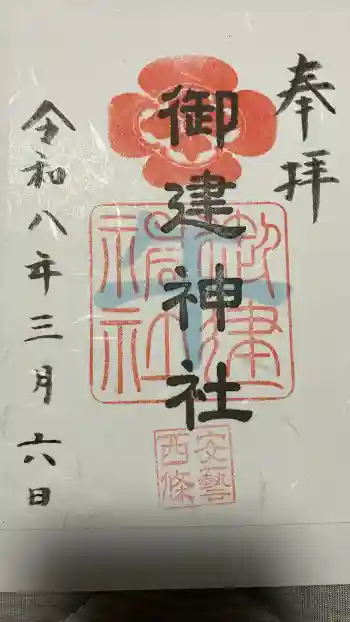 奉拝
御建神社
令和八年三月六日
御建
神社
安藝
西條